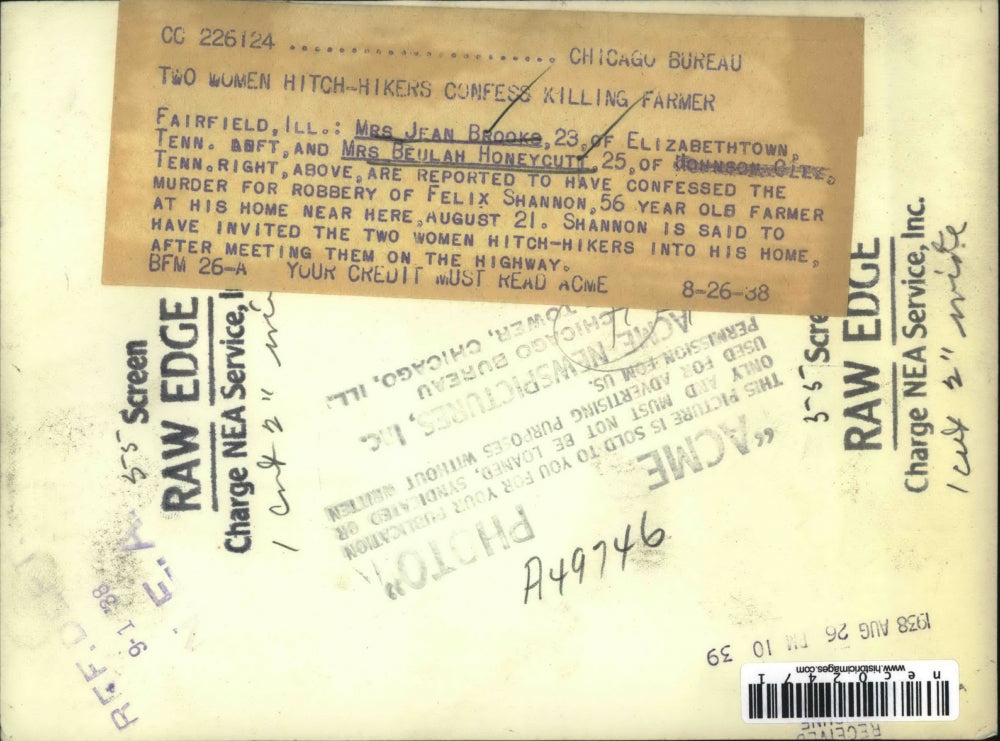 CC 226124 .......................... CHICAGO BUREAU
TWO WOMEN HITCH-HIKERS CONFESS KILLING FARMER
FAIRFIELD, ILL.: MRS JEAN BROOKS, 23, OF ELIZABETHTOWN,
TENN. LEFT, AND MRS BEULAH HONEYCUTT, 25, OF JOHNSON CITY,
TENN. RIGHT, ABOVE, ARE REPORTED TO HAVE CONFESSED THE
MURDER FOR ROBBERY OF FELIX SHANNON, 56 YEAR OLD FARMER
AT HIS HOME NEAR HERE, AUGUST 21. SHANNON IS SAID TO
HAVE INVITED THE TWO WOMEN HITCH-HIKERS INTO HIS HOME,
AFTER MEETING THEM ON THE HIGHWAY.
BFM 26-A YOUR CREDIT MUST READ ACME 8-26-38
55 Screen
RAW EDGE
Charge NEA Service, I
1 cut 2"
55 Scre
RAW EDGE
Charge NEA Service, Inc.
1 cut 2" wide
"ACME
PHOTO"
THIS PICTURE IS SOLD TO YOU FOR YOUR PUBLICATION
ONLY AND MUST NOT BE LOANED, SYNDICATED OR
USED FOR ADVERTISING PURPOSES WITHOUT WRITTEN
PERMISSION FROM US.
ACME NEWSPICTURES, INC.
CHICAGO BUREAU
TOWER, CHICAGO, ILL.
A49746
N. E. A.
REF. D
9-1-38
1938 AUG 26 PM 10 39
www.historicimages.com
necn02471
RECEIVED